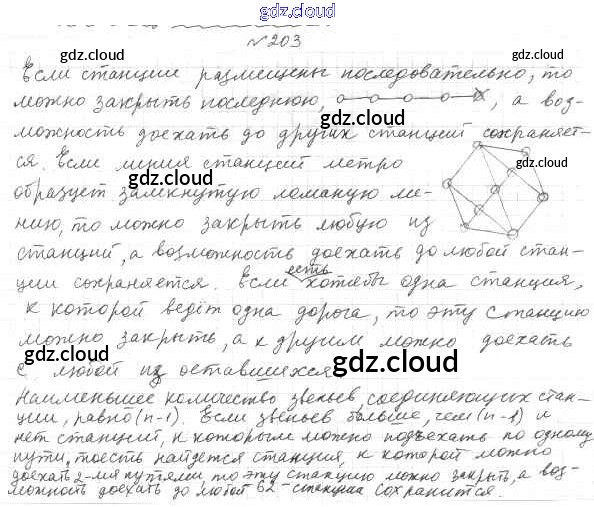 gdz.cloud
№203
Если станции размещены последовательно, то
можно закрыть последнюю, , а воз-
можность доехать до других станций сохраняет-
ся. Если линия станций метро
образует замкнутую ломаную ли-
нию, то можно закрыть любую из
станций, а возможность доехать до любой стан-
ции сохраняется. Если есть хотябы одна станция,
к которой ведёт одна дорога, то эту станцию
можно закрыть, а к другим можно доехать
с любой из оставшихся.
Наименьшее количество звеньев, соединяющих стан-
ции, равно (n-1). Если звеньев больше, чем (n-1) и
нет станций, к которым можно подъехать по одному
пути, тоесть найдется станция, к которой можно
доехать 2-мя путями, то эту станцию можно закрыть, а воз-
можность доехать до любой 62-станции сохранится.
gdz.cloud
gdz.cloud
gdz.cloud
gdz.cloud
gdz.cloud
gdz.cloud
gdz.cloud
gdz.cloud
gdz.cloud
gdz.cloud